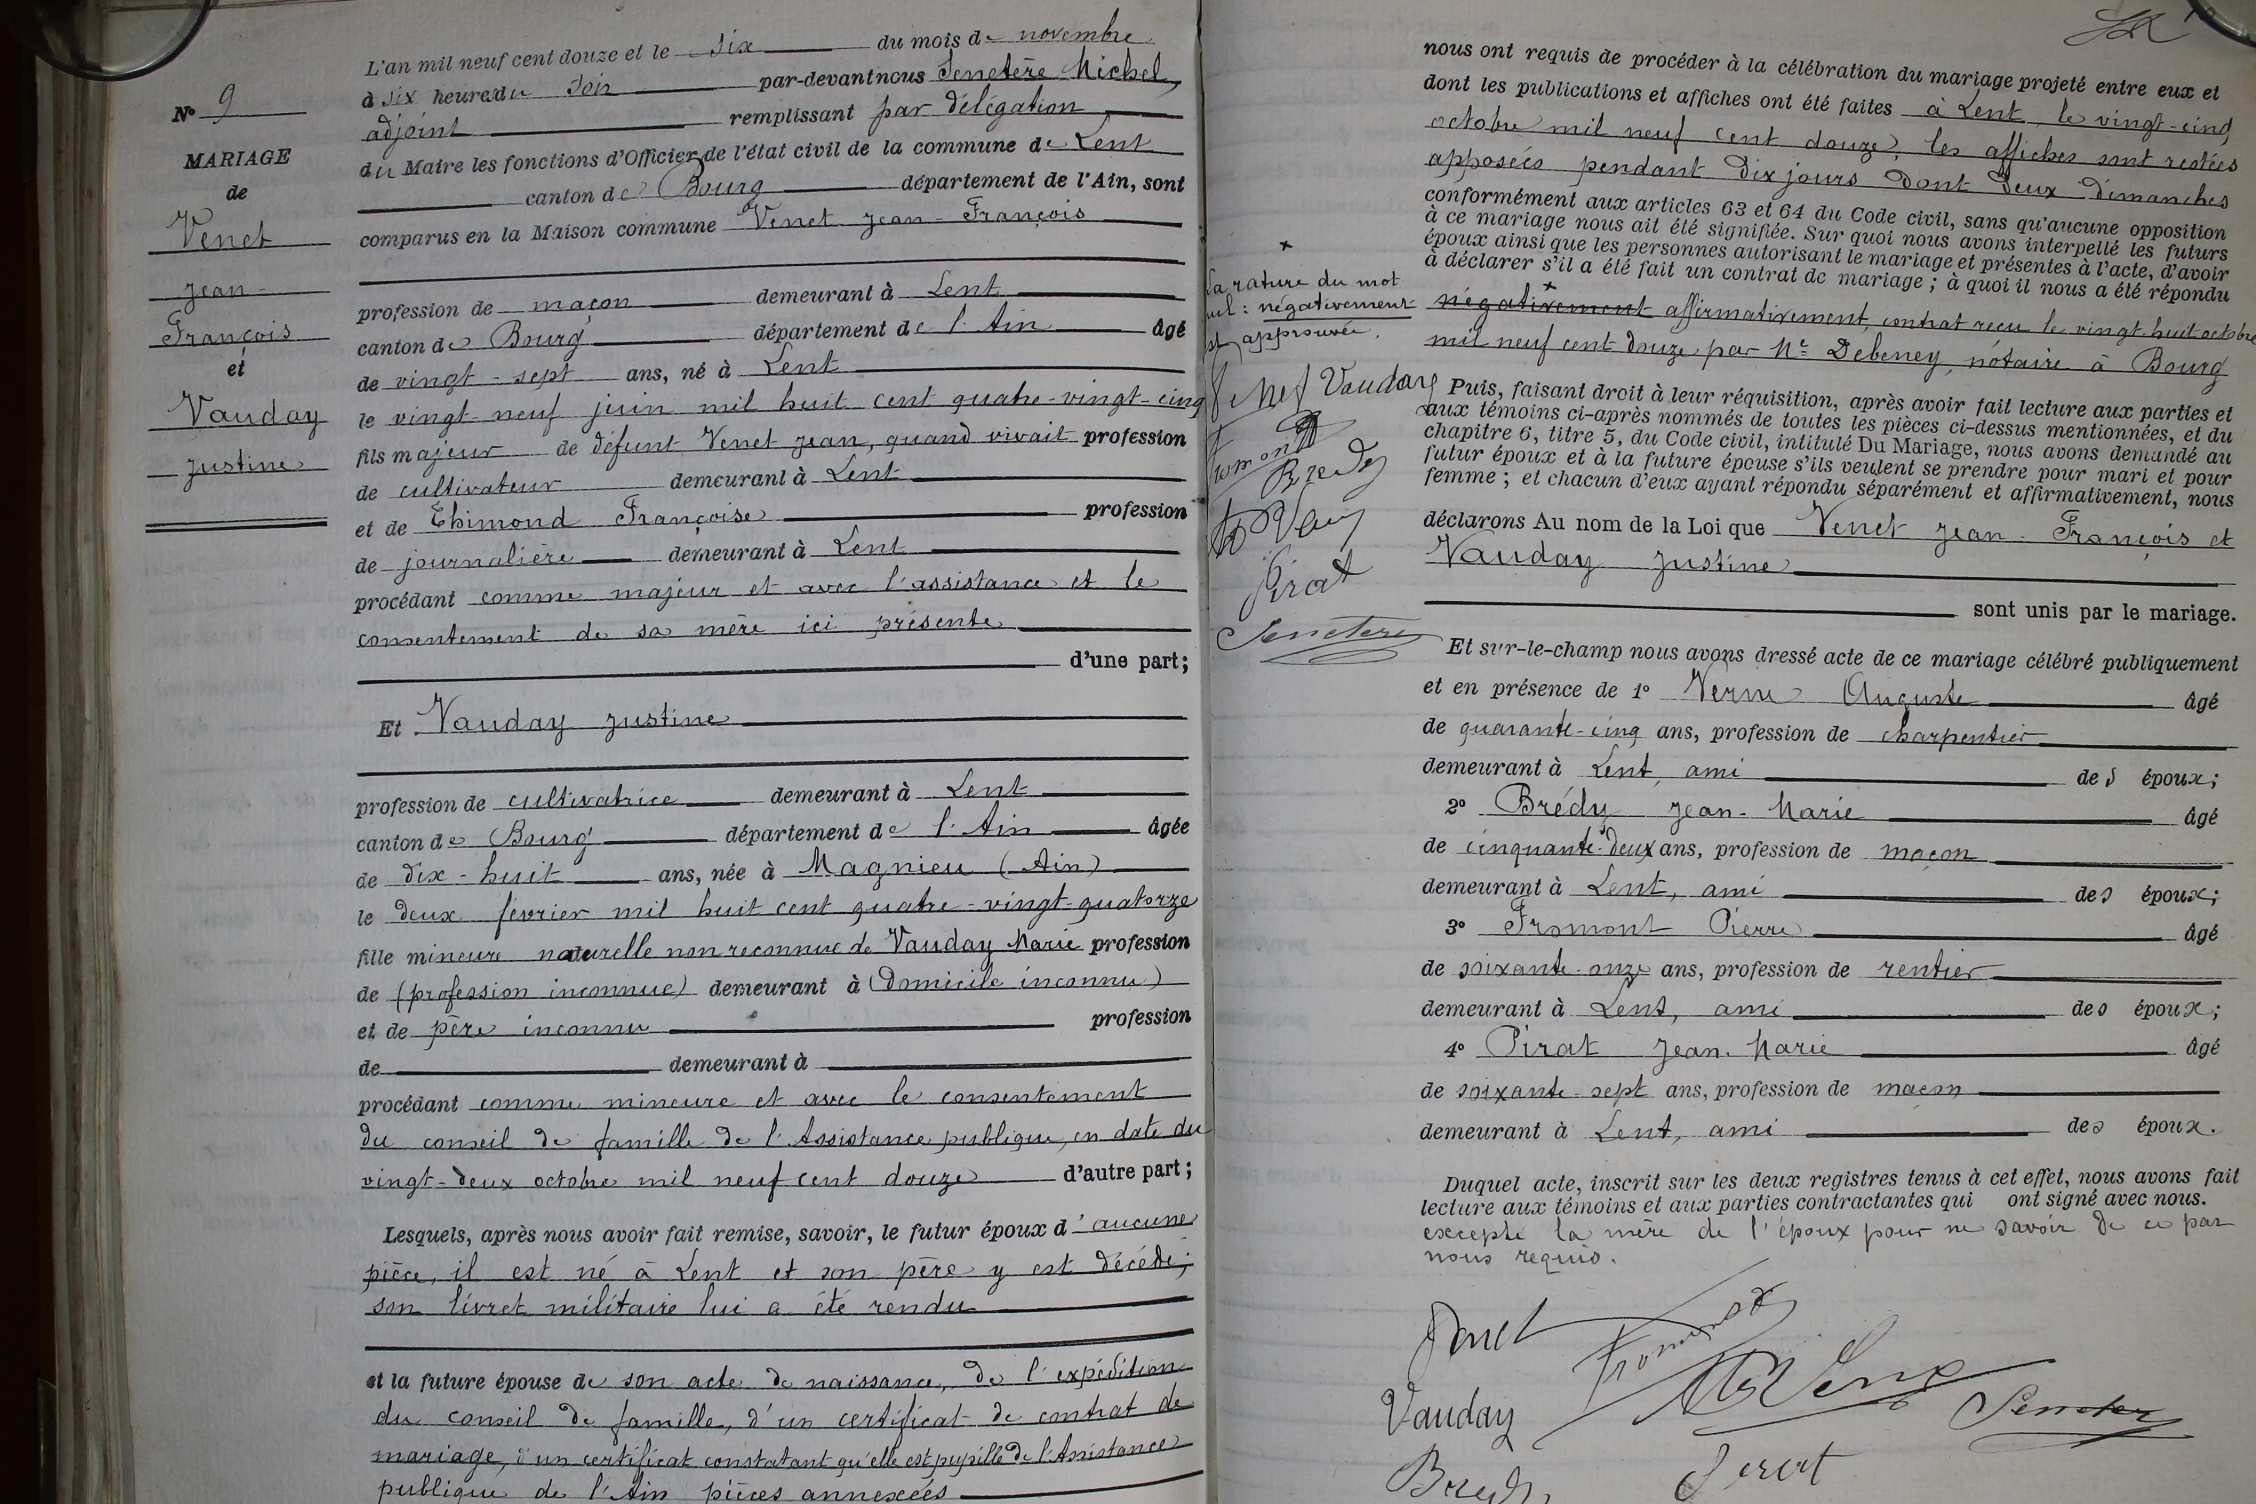 N° 9
MARIAGE
de
Venet
Jean-
François
et
Vauday
Justine
L'an mil neuf cent douze et le six du mois de novembre
à six heures du soir par-devant nous Senetère Michel,
adjoint remplissant par délégation
du Maire les fonctions d'Officier de l'état civil de la commune de Lent
canton de Bourg département de l'Ain, sont
comparus en la Maison commune Venet Jean-François
profession de maçon demeurant à Lent
canton de Bourg département de l'Ain âgé
de vingt-sept ans, né à Lent
le vingt-neuf juin mil huit cent quatre-vingt-cinq
fils majeur de défunt Venet Jean, quand vivait profession
de cultivateur demeurant à Lent
et de Thimond Françoise profession
de journalière demeurant à Lent
procédant comme majeur et avec l'assistance et le
consentement de sa mère ici présente
d'une part;
Et Vauday Justine
profession de cultivatrice demeurant à Lent
canton de Bourg département de l'Ain âgée
de dix-huit ans, née à Magnieu (Ain)
le deux février mil huit cent quatre-vingt-quatorze
fille mineure naturelle non reconnue de Vauday Marie profession
de (profession inconnue) demeurant à (domicile inconnu)
et de père inconnu profession
de demeurant à
procédant comme mineure et avec le consentement
du conseil de famille de l'Assistance publique, en date du
vingt-deux octobre mil neuf cent douze d'autre part;
Lesquels, après nous avoir fait remise, savoir, le futur époux d'aucune
pièce, il est né à Lent et son père y est décédé;
son livret militaire lui a été rendu
et la future épouse de son acte de naissance, de l'expédition
du conseil de famille, d'un certificat de contrat de
mariage, d'un certificat constatant qu'elle est pupille de l'Assistance
publique de l'Ain pièces annexées
nous ont requis de procéder à la célébration du mariage projeté entre eux et
dont les publications et affiches ont été faites à Lent, le vingt-cinq
octobre mil neuf cent douze, les affiches sont restées
apposées pendant dix jours dont deux dimanches
conformément aux articles 63 et 64 du Code civil, sans qu'aucune opposition
à ce mariage nous ait été signifiée. Sur quoi nous avons interpellé les futurs
époux ainsi que les personnes autorisant le mariage et présentes à l'acte, d'avoir
à déclarer s'il a été fait un contrat de mariage; à quoi il nous a été répondu
négativement affirmativement, contrat reçu le vingt-huit octobre
mil neuf cent douze par Me Debeney, notaire à Bourg
x
La rature du mot
nul: négativement
est approuvée.
Venet Vauday
Fromont
Bredy
Verne
Pirat
Senetere
Puis, faisant droit à leur réquisition, après avoir fait lecture aux parties et
aux témoins ci-après nommés de toutes les pièces ci-dessus mentionnées, et du
chapitre 6, titre 5, du Code civil, intitulé Du Mariage, nous avons demandé au
futur époux et à la future épouse s'ils veulent se prendre pour mari et pour
femme; et chacun d'eux ayant répondu séparément et affirmativement, nous
déclarons Au nom de la Loi que Venet Jean-François et
Vauday Justine
sont unis par le mariage.
Et sur-le-champ nous avons dressé acte de ce mariage célébré publiquement
et en présence de 1° Verne Auguste âgé
de quarante-cinq ans, profession de charpentier
demeurant à Lent, ami des époux;
2° Brédy Jean-Marie âgé
de cinquante-deux ans, profession de maçon
demeurant à Lent, ami des époux;
3° Fromont Pierre âgé
de soixante-onze ans, profession de rentier
demeurant à Lent, ami des époux;
4° Pirat Jean-Marie âgé
de soixante-sept ans, profession de maçon
demeurant à Lent, ami des époux.
Duquel acte, inscrit sur les deux registres tenus à cet effet, nous avons fait
lecture aux témoins et aux parties contractantes qui ont signé avec nous.
excepté la mère de l'époux pour ne savoir de ce par
nous requis.
Venet Fromont
Vauday Verne Seneter
Bredy Pirat